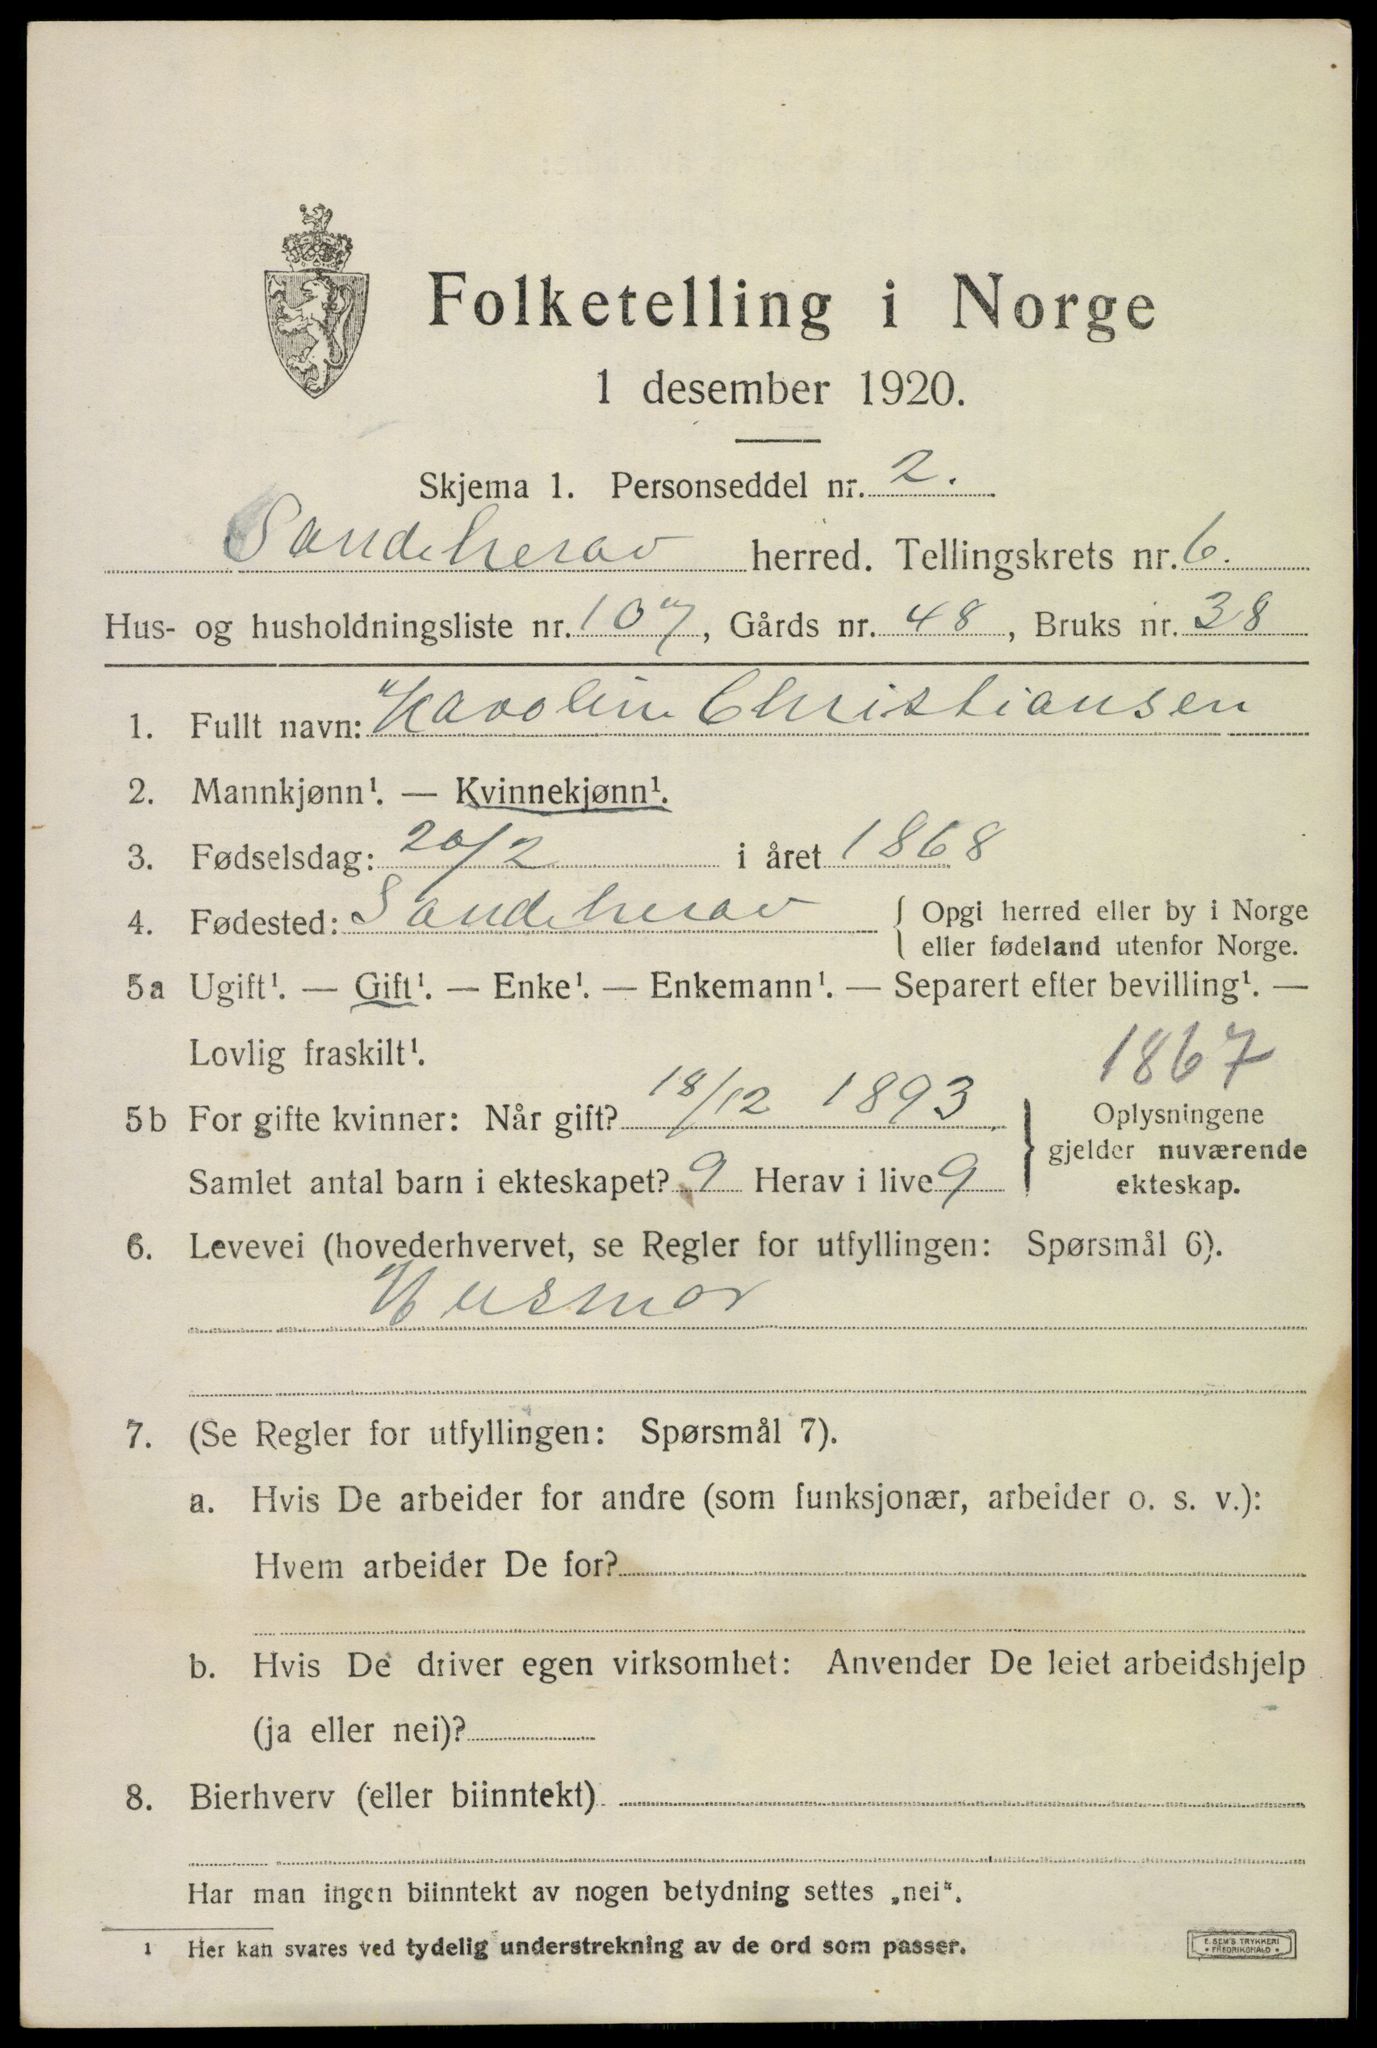 Folketelling i Norge
1 desember 1920.
Skjema 1. Personseddel nr. 2.
Sandeherav herred. Tellingskrets nr. 6.
Hus- og husholdningsliste nr. 107, Gårds nr. 48, Bruks nr. 38
1. Fullt navn: Karolin Christiansen
2. Mannkjønn¹. — Kvinnekjønn¹.
3. Fødselsdag: 20/2 i året 1868
4. Fødested: Sandeherav { Opgi herred eller by i Norge
eller fødeland utenfor Norge.
5a Ugift¹. — Gift¹. — Enke¹. — Enkemann¹. — Separert efter bevilling¹. —
Lovlig fraskilt¹.
1867
5b For gifte kvinner: Når gift? 18/12 1893.
Samlet antal barn i ekteskapet? 9 Herav i live 9
} Oplysningene
gjelder nuværende
ekteskap.
6. Levevei (hovederhvervet, se Regler for utfyllingen: Spørsmål 6).
Husmor
7. (Se Regler for utfyllingen: Spørsmål 7).
a. Hvis De arbeider for andre (som funksjonær, arbeider o. s. v.):
Hvem arbeider De for?
b. Hvis De driver egen virksomhet: Anvender De leiet arbeidshjelp
(ja eller nei)?
8. Bierhverv (eller biinntekt)
Har man ingen biinntekt av nogen betydning settes „nei“.
1 Her kan svares ved tydelig understrekning av de ord som passer.
E. SEM'S TRYKKERI
• FREDRIKSHALD •